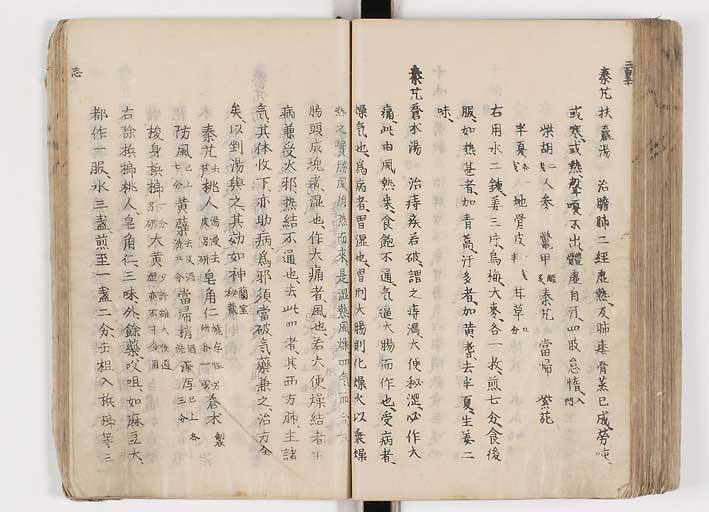 秦艽扶羸湯　治膽肺二經虚熱及肺痿骨蒸已成勞嗽
或寒或熱聲嗄不出體虚自汗四肢怠惰
柴胡二戔　人参　鱉甲　秦艽　當帰　紫菀
半夏各一戔　地骨皮一戔半　甘草
右用水二鍾姜三片烏梅大棗各一枚煎七分食後
服如熱甚者加青蒿汗多者加黄耆去半夏生姜二
味
秦艽蒼术湯　治痔疾若破謂之痔漏大便秘澀必作大
痛此由風熱乘食飽不通氣逼大腸而作也受病者
燥氣也為病者胃湿也胃刑大腸則化燥火以乗燥
熱之實勝風附熱而来是湿熱風燥四氣而合
腸頭成塊者湿也作大痛者風也若大便燥結者主
病兼受火邪熱結不通也去此四者其西方肺主諸
氣其体收下亦助病為邪須當破氣藥兼之治方全
矣以剉湯與之其効如神
秦艽去芦　桃人湯浸去皮另研　皂角仁焼存性　蒼术製
防風已上七分　黄蘗　當帰梢酒洗　澤泻已上各三分
梭身梹榔一分別研　大黄少許雖大便過澀亦不可多用
右除梹榔桃人皂角仁三味外餘藥㕮咀如麻豆大
都作一服水三盞煎至一盞二分去柤入梹榔等三